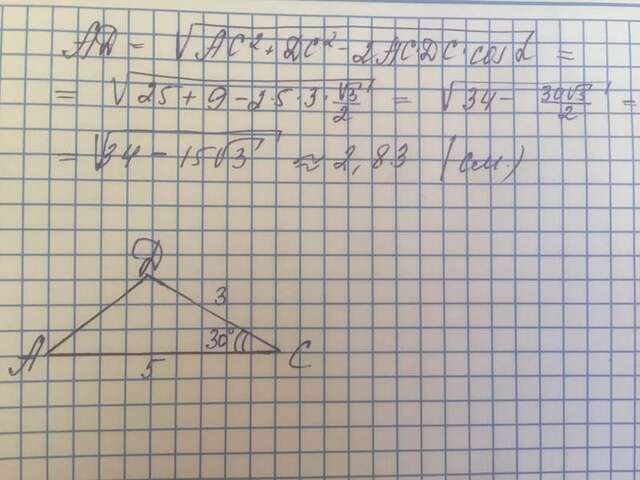 AD = √(AC² + DC² - 2AC·DC·cos α) =
= √(25 + 9 - 2·5·3·√3/2) = √(34 - 30√3/2) =
= √(34 - 15√3) ≈ 2,83 (см.)
D
3
30°
A
C
5